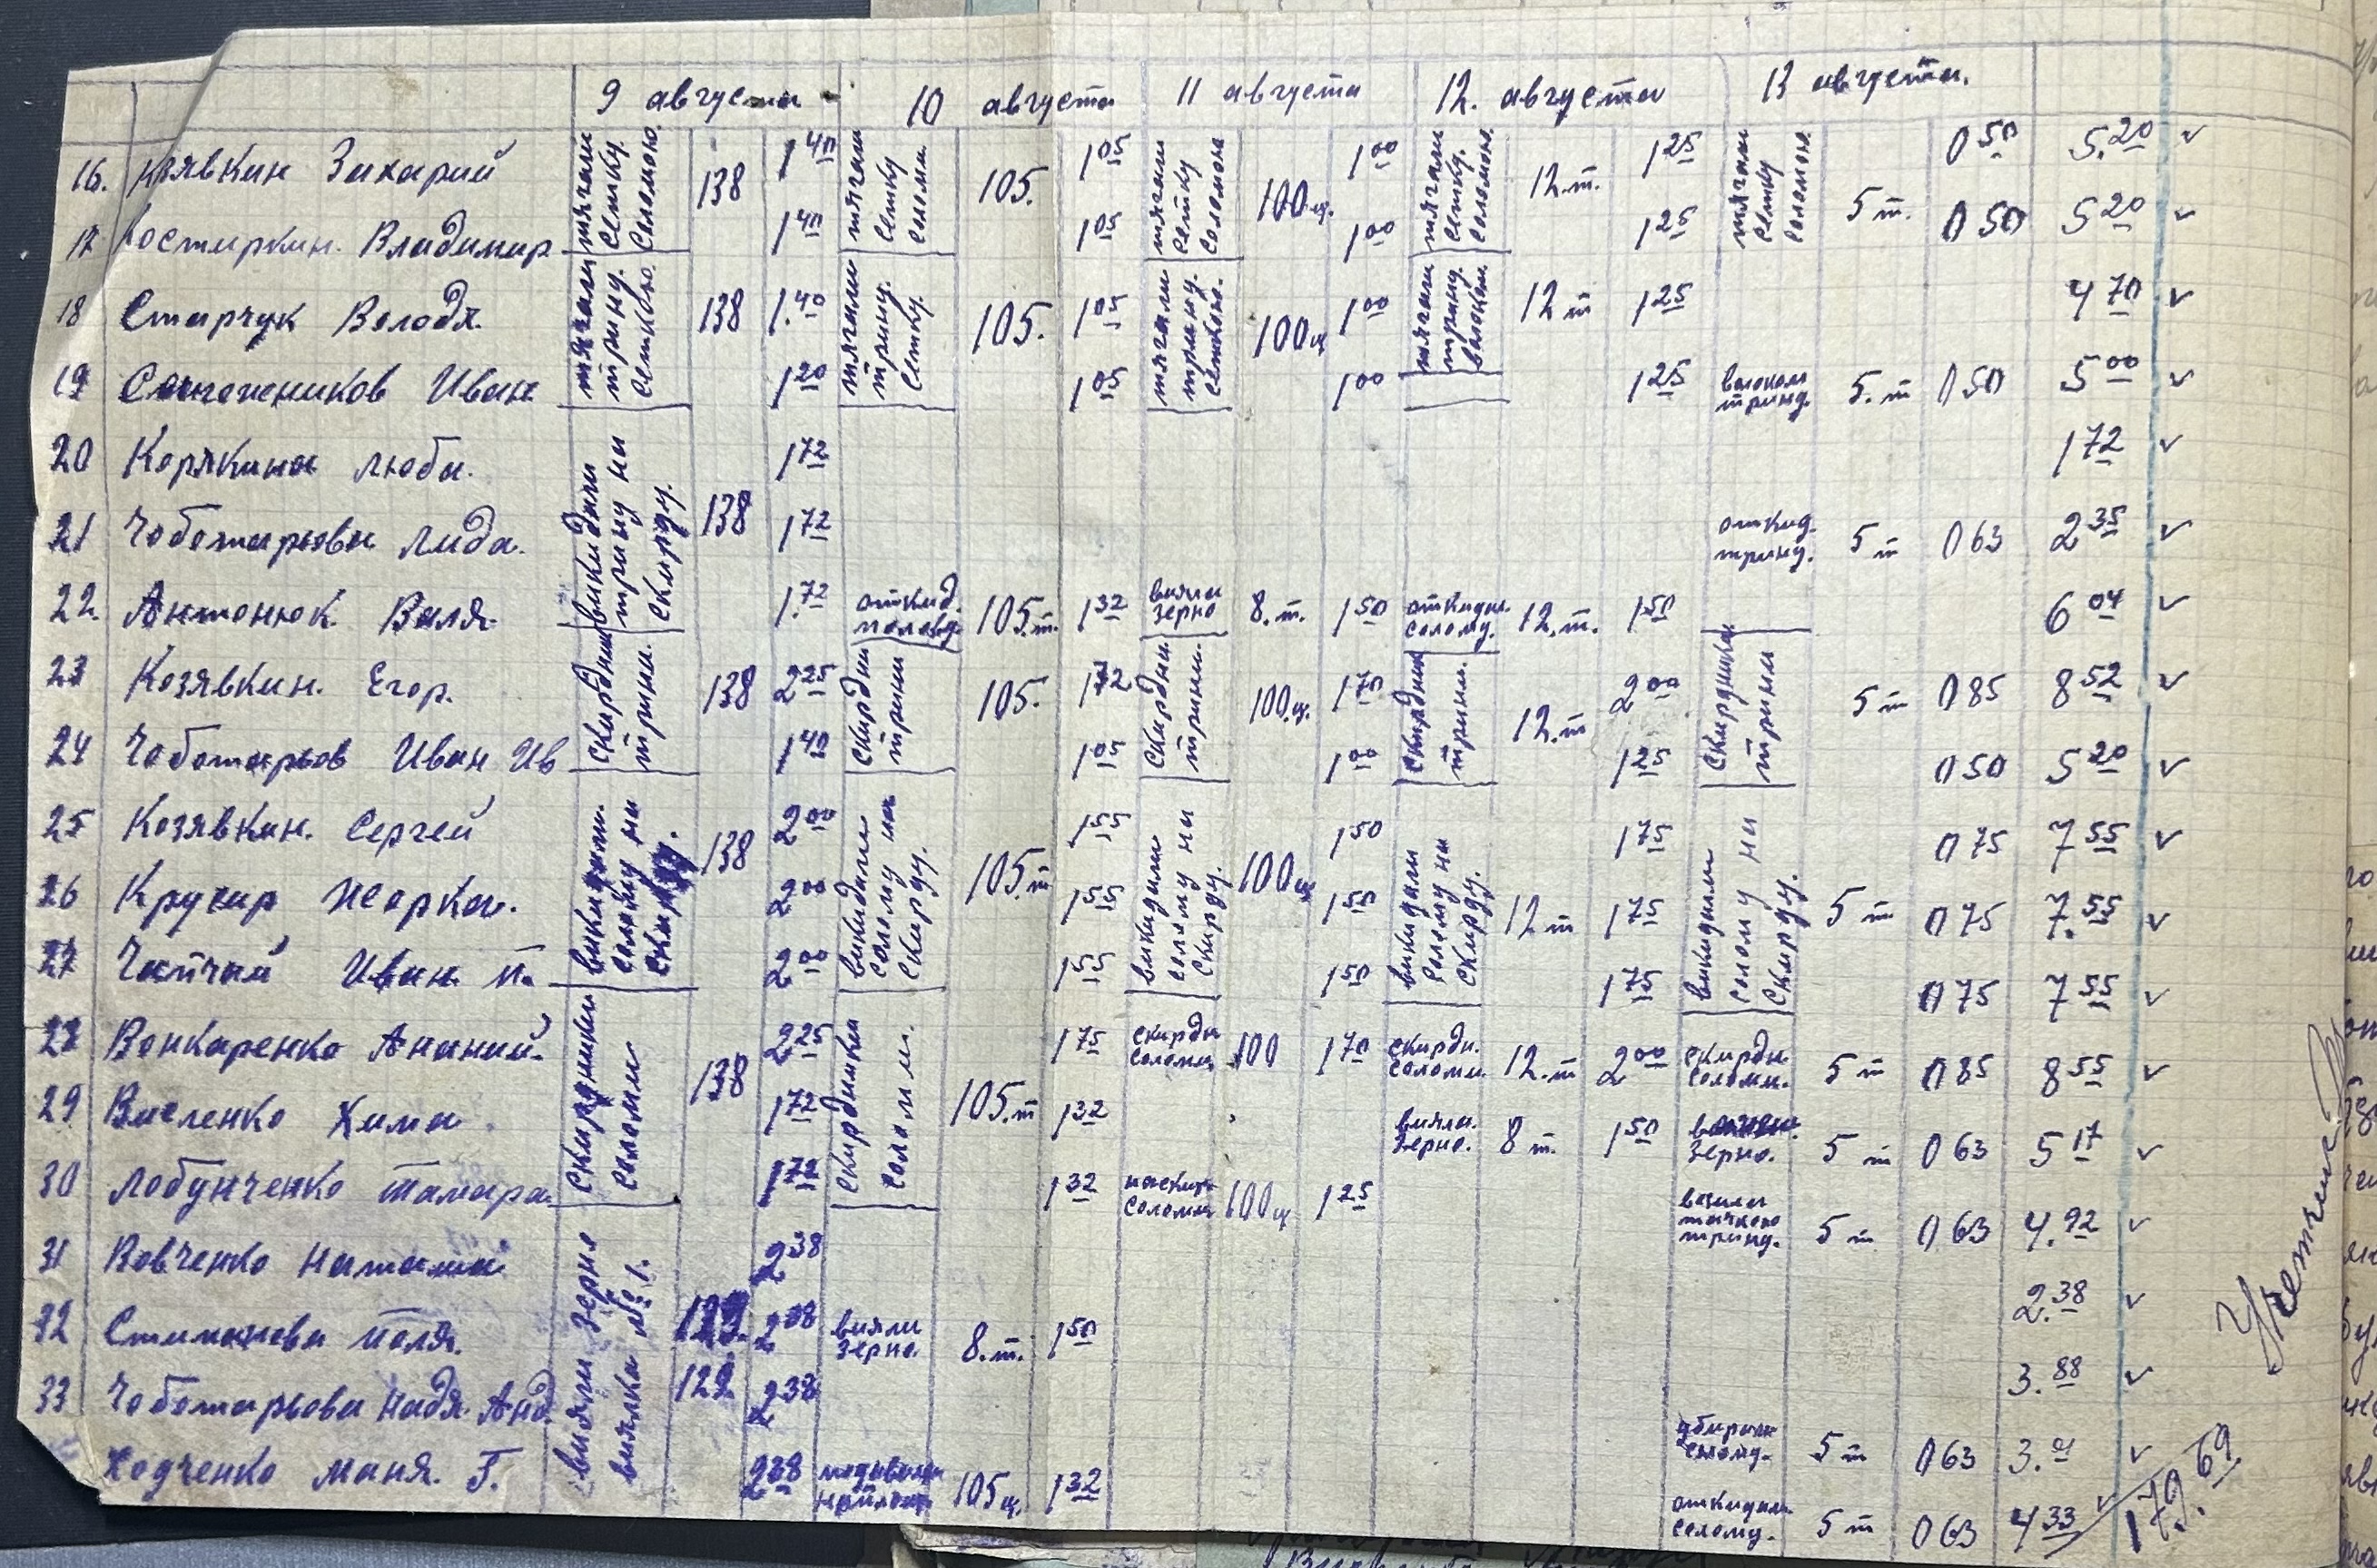 9 августа 10 августа 11 августа 12. августа 13 августа.
16. Козявкин Захарий тягали сетку. соломою. 138 1 40 тягали сетку соломи. 105. 1 05 тягали сетку соломою 100 ц. 1 00 тягали сетку. соломою. 12.т. 1 25 тягали сетку соломою. 5 т. 0 50 5.20 ✓
17 Костиркин. Владимир 1 40 1 05 1 00 1 25 0 50 5 20 ✓
18 Старчук Володя. тягали трину. сеткою. 138 1.40 тягали трину. сетку. 105. 1 05 тягали трину. сеткою. 100 ц 1 00 тягали трину. волоком. 12 т 1 25 4 70 ✓
19 Иван 1 20 1 05 1 00 1 25 волоком трину. 5.т 0 50 5 00 ✓
20 Корякина Люба. викидали трину на скирду. 138 1 72 1 72 ✓
21 Чоботарьова Лида. 1 72 откид. трину. 5 т 0 63 2 35 ✓
22. Антонюк. Валя. 1.72 откид. полову. 105.т. 1 32 вияли зерно 8.т. 1 50 откидал. солому. 12.т. 1 50 6 04 ✓
23 Козявкин. Егор. скирдники трини. 138 2 25 скирдни трини 105. 1 72 скирдни. трини. 100.ц. 1 70 скирдник трини. 12.т 2 00 скирдники трини 5 т 0 85 8 52 ✓
24 Чоботарьов Иван Ив 1 40 1 05 1 00 1 25 0 50 5 20 ✓
25 Козявкин. Сергей викидали. солому на скирду. 138 2 00 викидали солому на скирду. 105.т 1 55 викидали солому на скирду. 100 ц 1 50 викидали солому на скирду. 12 т 1 75 викидали солому на скирду. 5 т 0 75 7 55 ✓
26 Кручар Жорка. 2 00 1 55 1 50 1 75 0 75 7.55 ✓
27 Иван. П. 2 00 1 55 1 50 1 75 0 75 7 55 ✓
28 Бонкаренко Ананий. скирдники соломи 138 2 25 скирдники соломи. 105.т 1 75 скирдн соломи 100 1 70 скирдн. соломи. 12.т 2 00 скирдн. соломи. 5 т 0 85 8 55 ✓
29 Василенко Хима 1 72 1 32 вияли. зерно. 8 т. 1 50 зерно. 5 т 0 63 5 17 ✓
30 Лобунченко Тамара. 1 72 1 32 соломи 100 ц 1 25 возила тачкою трину. 5 т 0 63 4.92 ✓
31 Вовченко Наташа вияли зерна виялка №1. 2 38 2.38 ✓
32 Симонова Поля. 129. 2 38 вияли зерно. 8.т. 1 50 3.88 ✓
33 Чоботарьова Надя. Анд. 129. 2 38 солому. 5 т 0 63 3. 01 ✓
Ходченко Маня. Г. 2 38 105 ц. 1 32 откидали. солому. 5 т 0 63 4 33 ✓
179.69
Учетчик